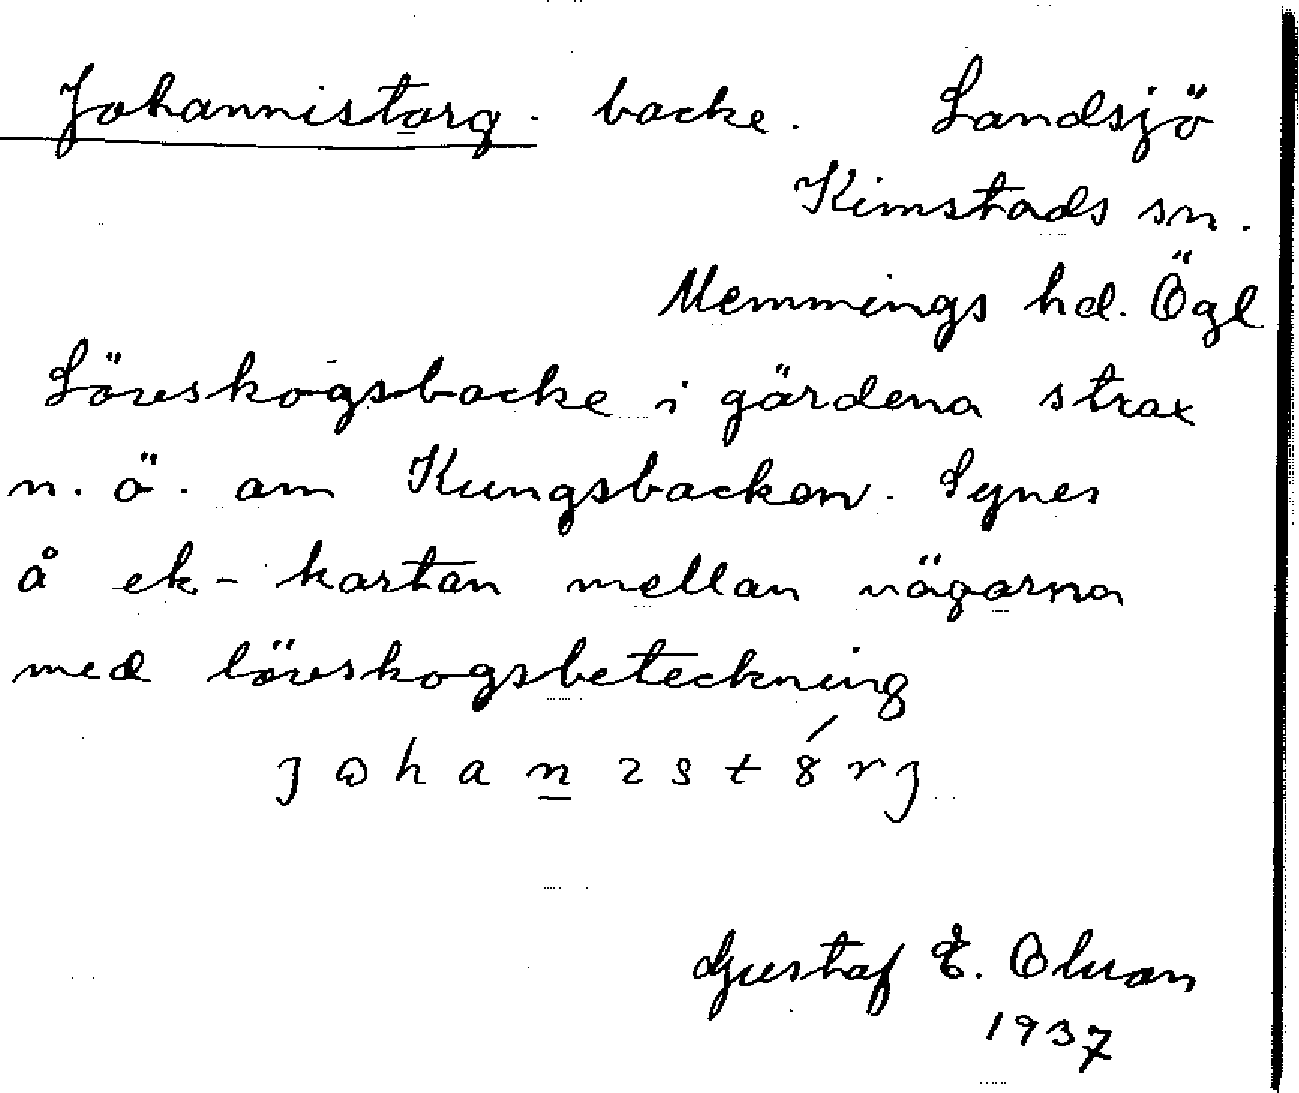 Johannistorg. backe. Landsjö
Kimstads sn.
Memmings hd. Ögl
Lövskogsbacke i gärdena strax
n. ö. om Kungsbacken. Synes
å ek-kartan mellan vägarna
med lövskogsbeteckning
Gustaf E. Olsson
1937